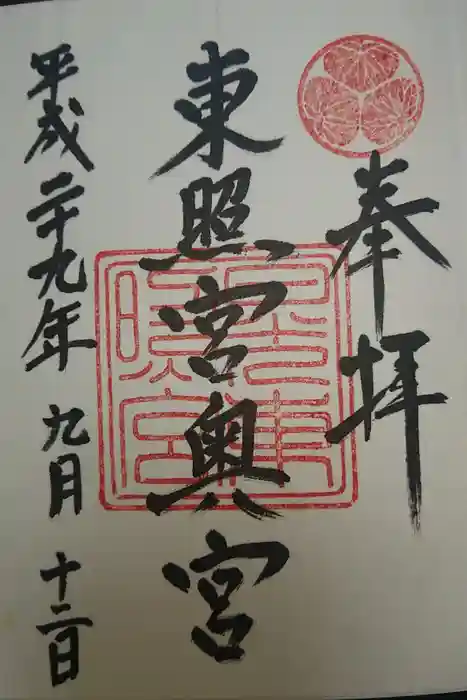 奉拝
東照宮奥宮
平成二十九年 九月 十二日